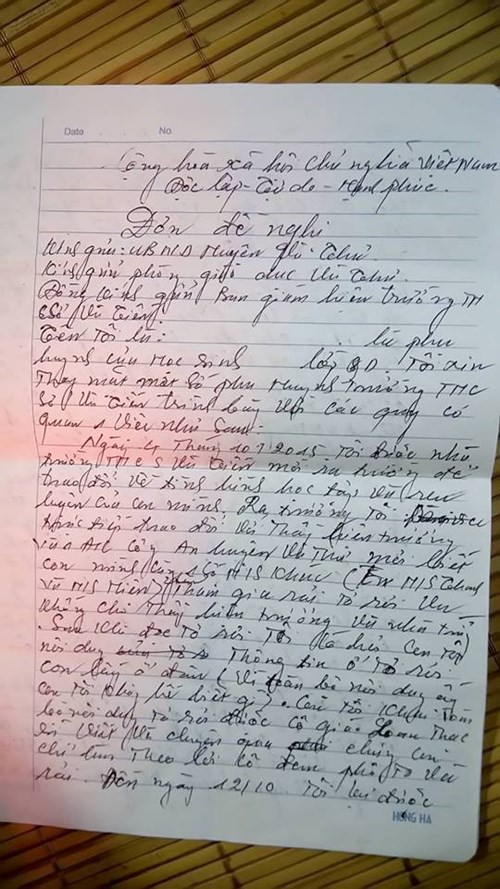 Date No.
Cộng hòa xã hội chủ nghĩa Việt Nam
Độc lập - Tự do - Hạnh phúc.
Đơn đề nghị
Kính gửi: UBND Huyện Vũ Thư
Kính gửi phòng giáo dục Vũ Thư.
Đồng kính gửi Ban giám hiệu trường TH
CS Vũ Tiến
Tên tôi là: là phụ
huynh của Học sinh lớp 9D Tôi xin
Thay mặt một số phụ Huynh trường THC
S Vũ Tiến trình bày với các quý cơ
quan 1 việc như sau.
Ngày 4 Tháng 10 2015 Tôi được nhà
trường THCS Vũ Tiến mời ra trường để
trao đổi về tình hình học tập và rèn
luyện của con mình. Ra trường Tôi
trực tiếp trao đổi với Thầy hiệu trưởng
và 2 Công An huyện Vũ Thư mới biết
con mình cùng số H/S khác (Em H/S
và H/S Miền) Tham gia rải tờ rơi vu
khống cho Thầy hiệu trưởng và nhà trường
Sau khi đọc tờ rơi Tôi có hỏi con Tôi
nội dung Thông tin ở tờ rơi
con lấy ở đâu (Vì toàn bộ nội dung ấy
con tôi không hề biết gì). Con tôi khai Toàn
bộ nội dung tờ rơi được cô giáo Loan
viết và chuyển qua chúng con
chỉ làm Theo lời cô đem phô tô và
rải. Đến ngày 12/10 Tôi lại được
HỒNG HÀ